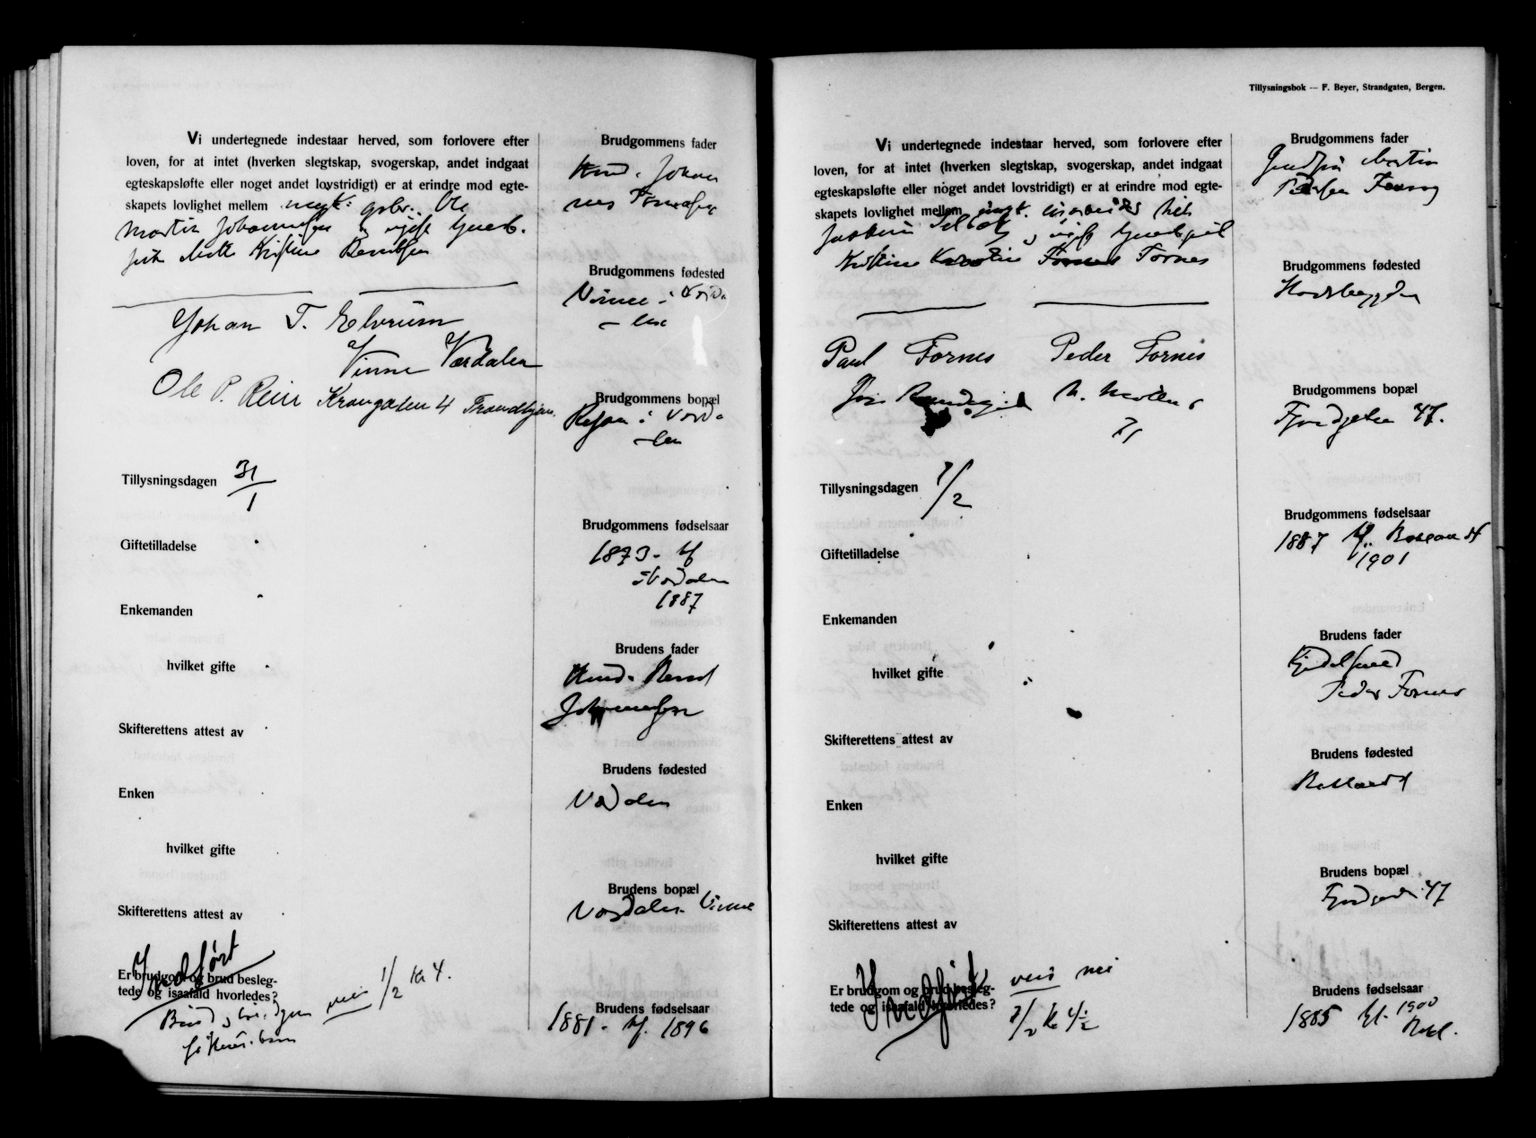 Vi undertegnede indestaar herved, som forlovere efter
loven, for at intet (hverken slegtskap, svogerskap, andet indgaat
egteskapsløfte eller noget andet lovstridigt) er at erindre mod egte-
skapets lovlighet mellem ungk. Ole
Martin Johannesen og ugift
Mette Kristine Berntsen
Johan T. Elverum
Vinne Værdalen
Ole P. Rein Krangaten 4 Trondhjem.
Tillysningsdagen 31/1
Giftetilladelse
Enkemanden
hvilket gifte
Skifterettens attest av
Enken
hvilket gifte
Skifterettens attest av
Indført
Er brudgom og brud besleg-
tede og isaafald hvorledes? nei 1/2 kl 4.
Brud og brudgom
søskenbarn
Brudgommens fader
Johan
nes
Brudgommens fødested
Vinne i Værda
len
Brudgommens bopæl
i Værda
len
Brudgommens fødselsaar
1873
Værdalen
1887
Brudens fader
Bernt
Johannesen
Brudens fødested
Værdalen
Brudens bopæl
Værdalen Vinne
Brudens fødselsaar
1881 - kf. 1896
Tillysningsbok — F. Beyer, Strandgaten, Bergen.
Vi undertegnede indestaar herved, som forlovere efter
loven, for at intet (hverken slegtskap, svogerskap, andet indgaat
egteskapsløfte eller noget andet lovstridigt) er at erindre mod egte-
skapets lovlighet mellem ungk.
og ugift
Kristine Karoline Fornes
Paul Fornes Peder Fornes
Tillysningsdagen 7/2
Giftetilladelse
Enkemanden
hvilket gifte
Skifterettens attest av
Enken
hvilket gifte
Skifterettens attest av
Indført
Er brudgom og brud besleg-
tede og isaafald hvorledes? nei nei
7/2 kl 4½
Brudgommens fader
Martin
Brudgommens fødested
Brudgommens bopæl
Fjordgaten 47.
Brudgommens fødselsaar
1887 kf.
1901
Brudens fader
Peder Fornes
Brudens fødested
Brudens bopæl
47
Brudens fødselsaar
1885 kf. 1900